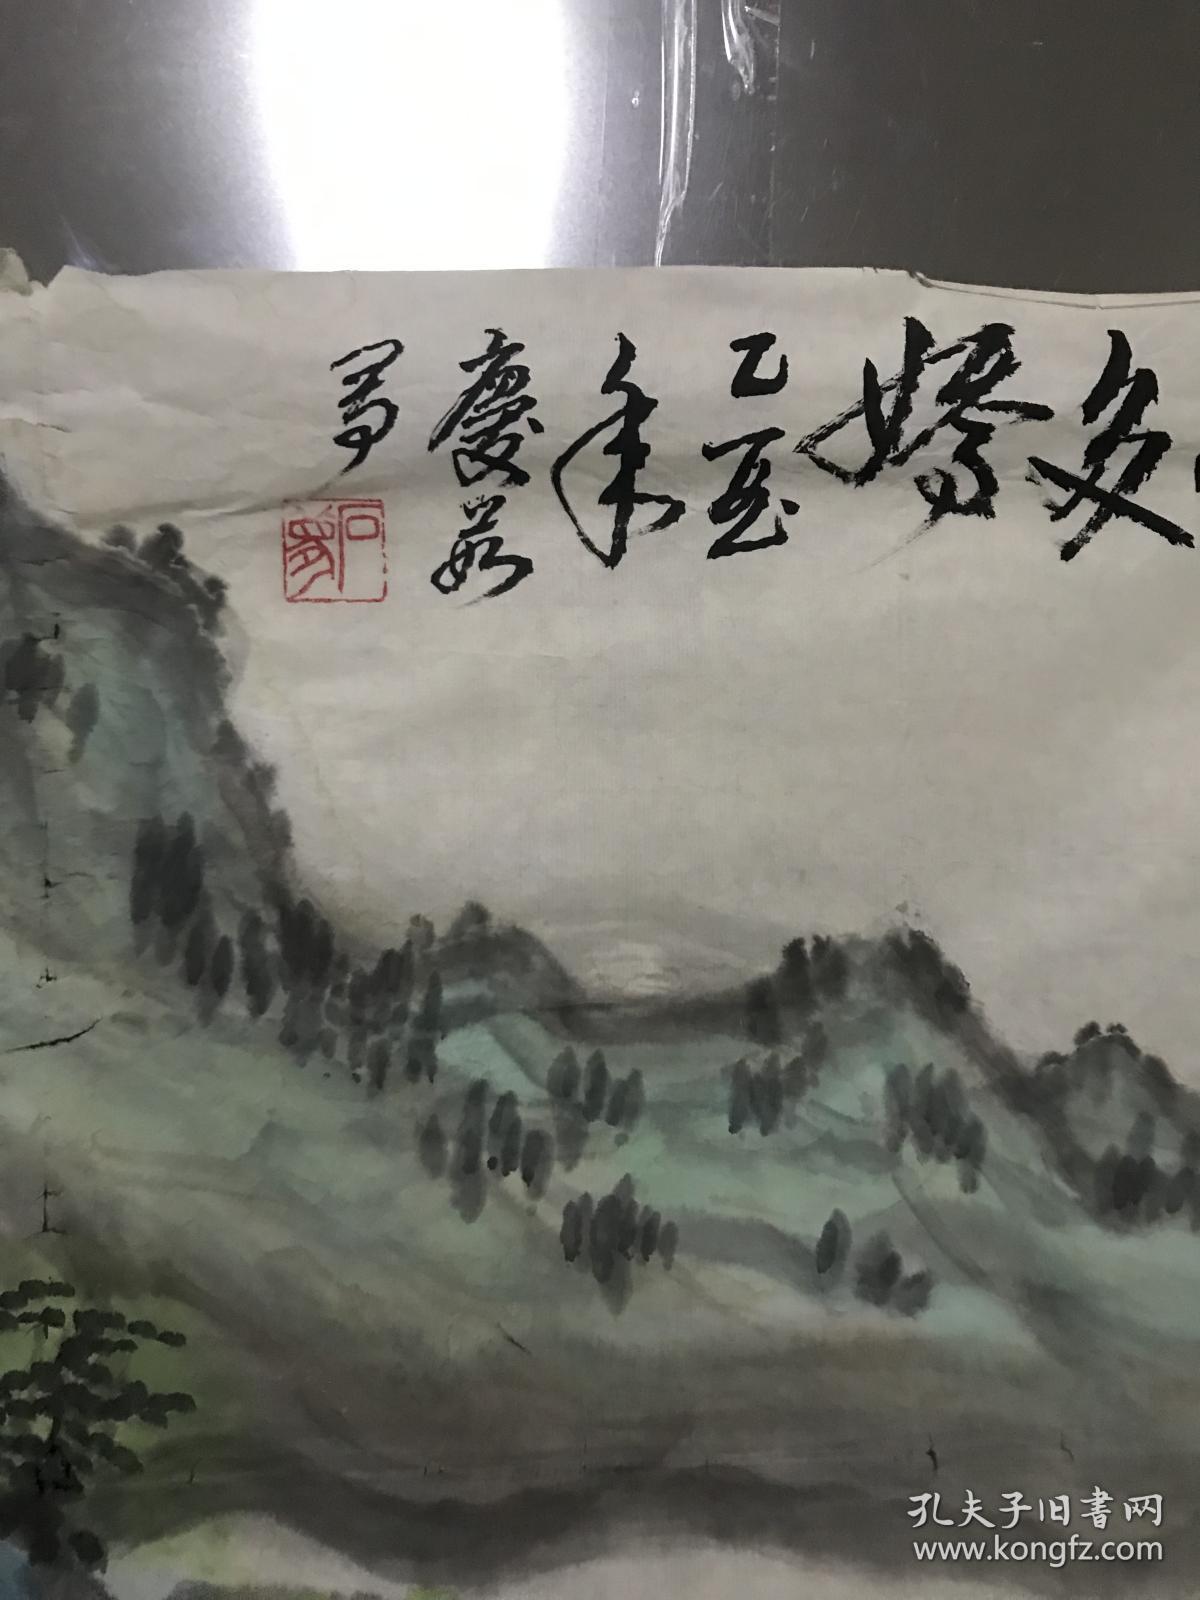 多嬌
乙酉
年
慶茹
写
孔夫子旧書网
www.kongfz.com